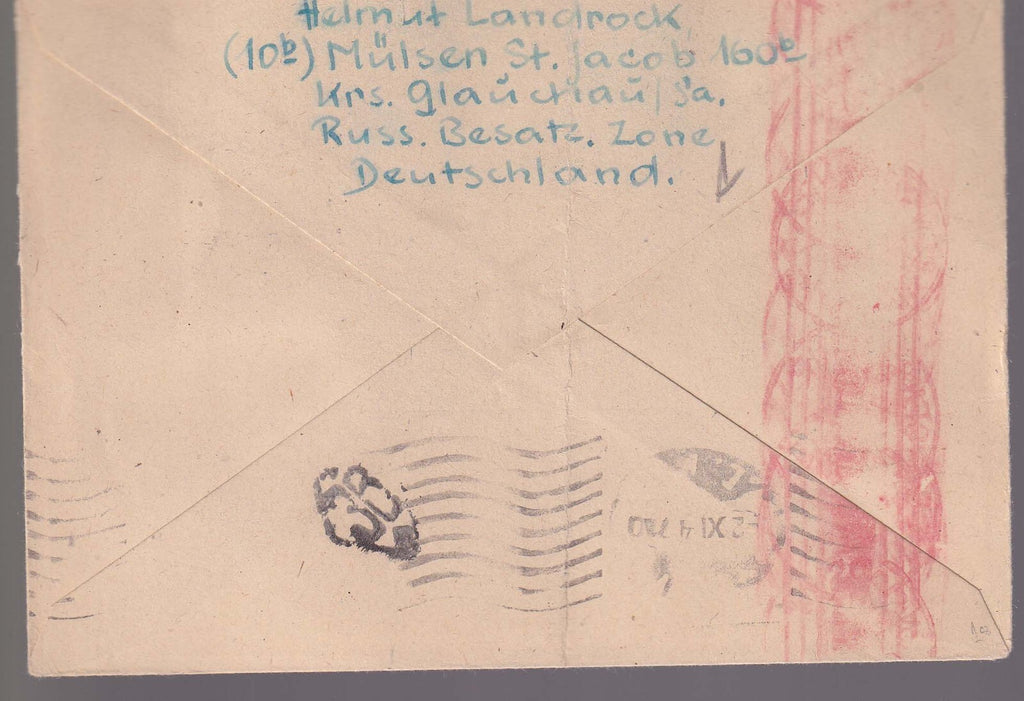 Helmut Landrock
(10b) Mülsen St. Jacob 160b
Krs. Glauchau/Sa.
Russ. Besatz. Zone
Deutschland.
XI 4